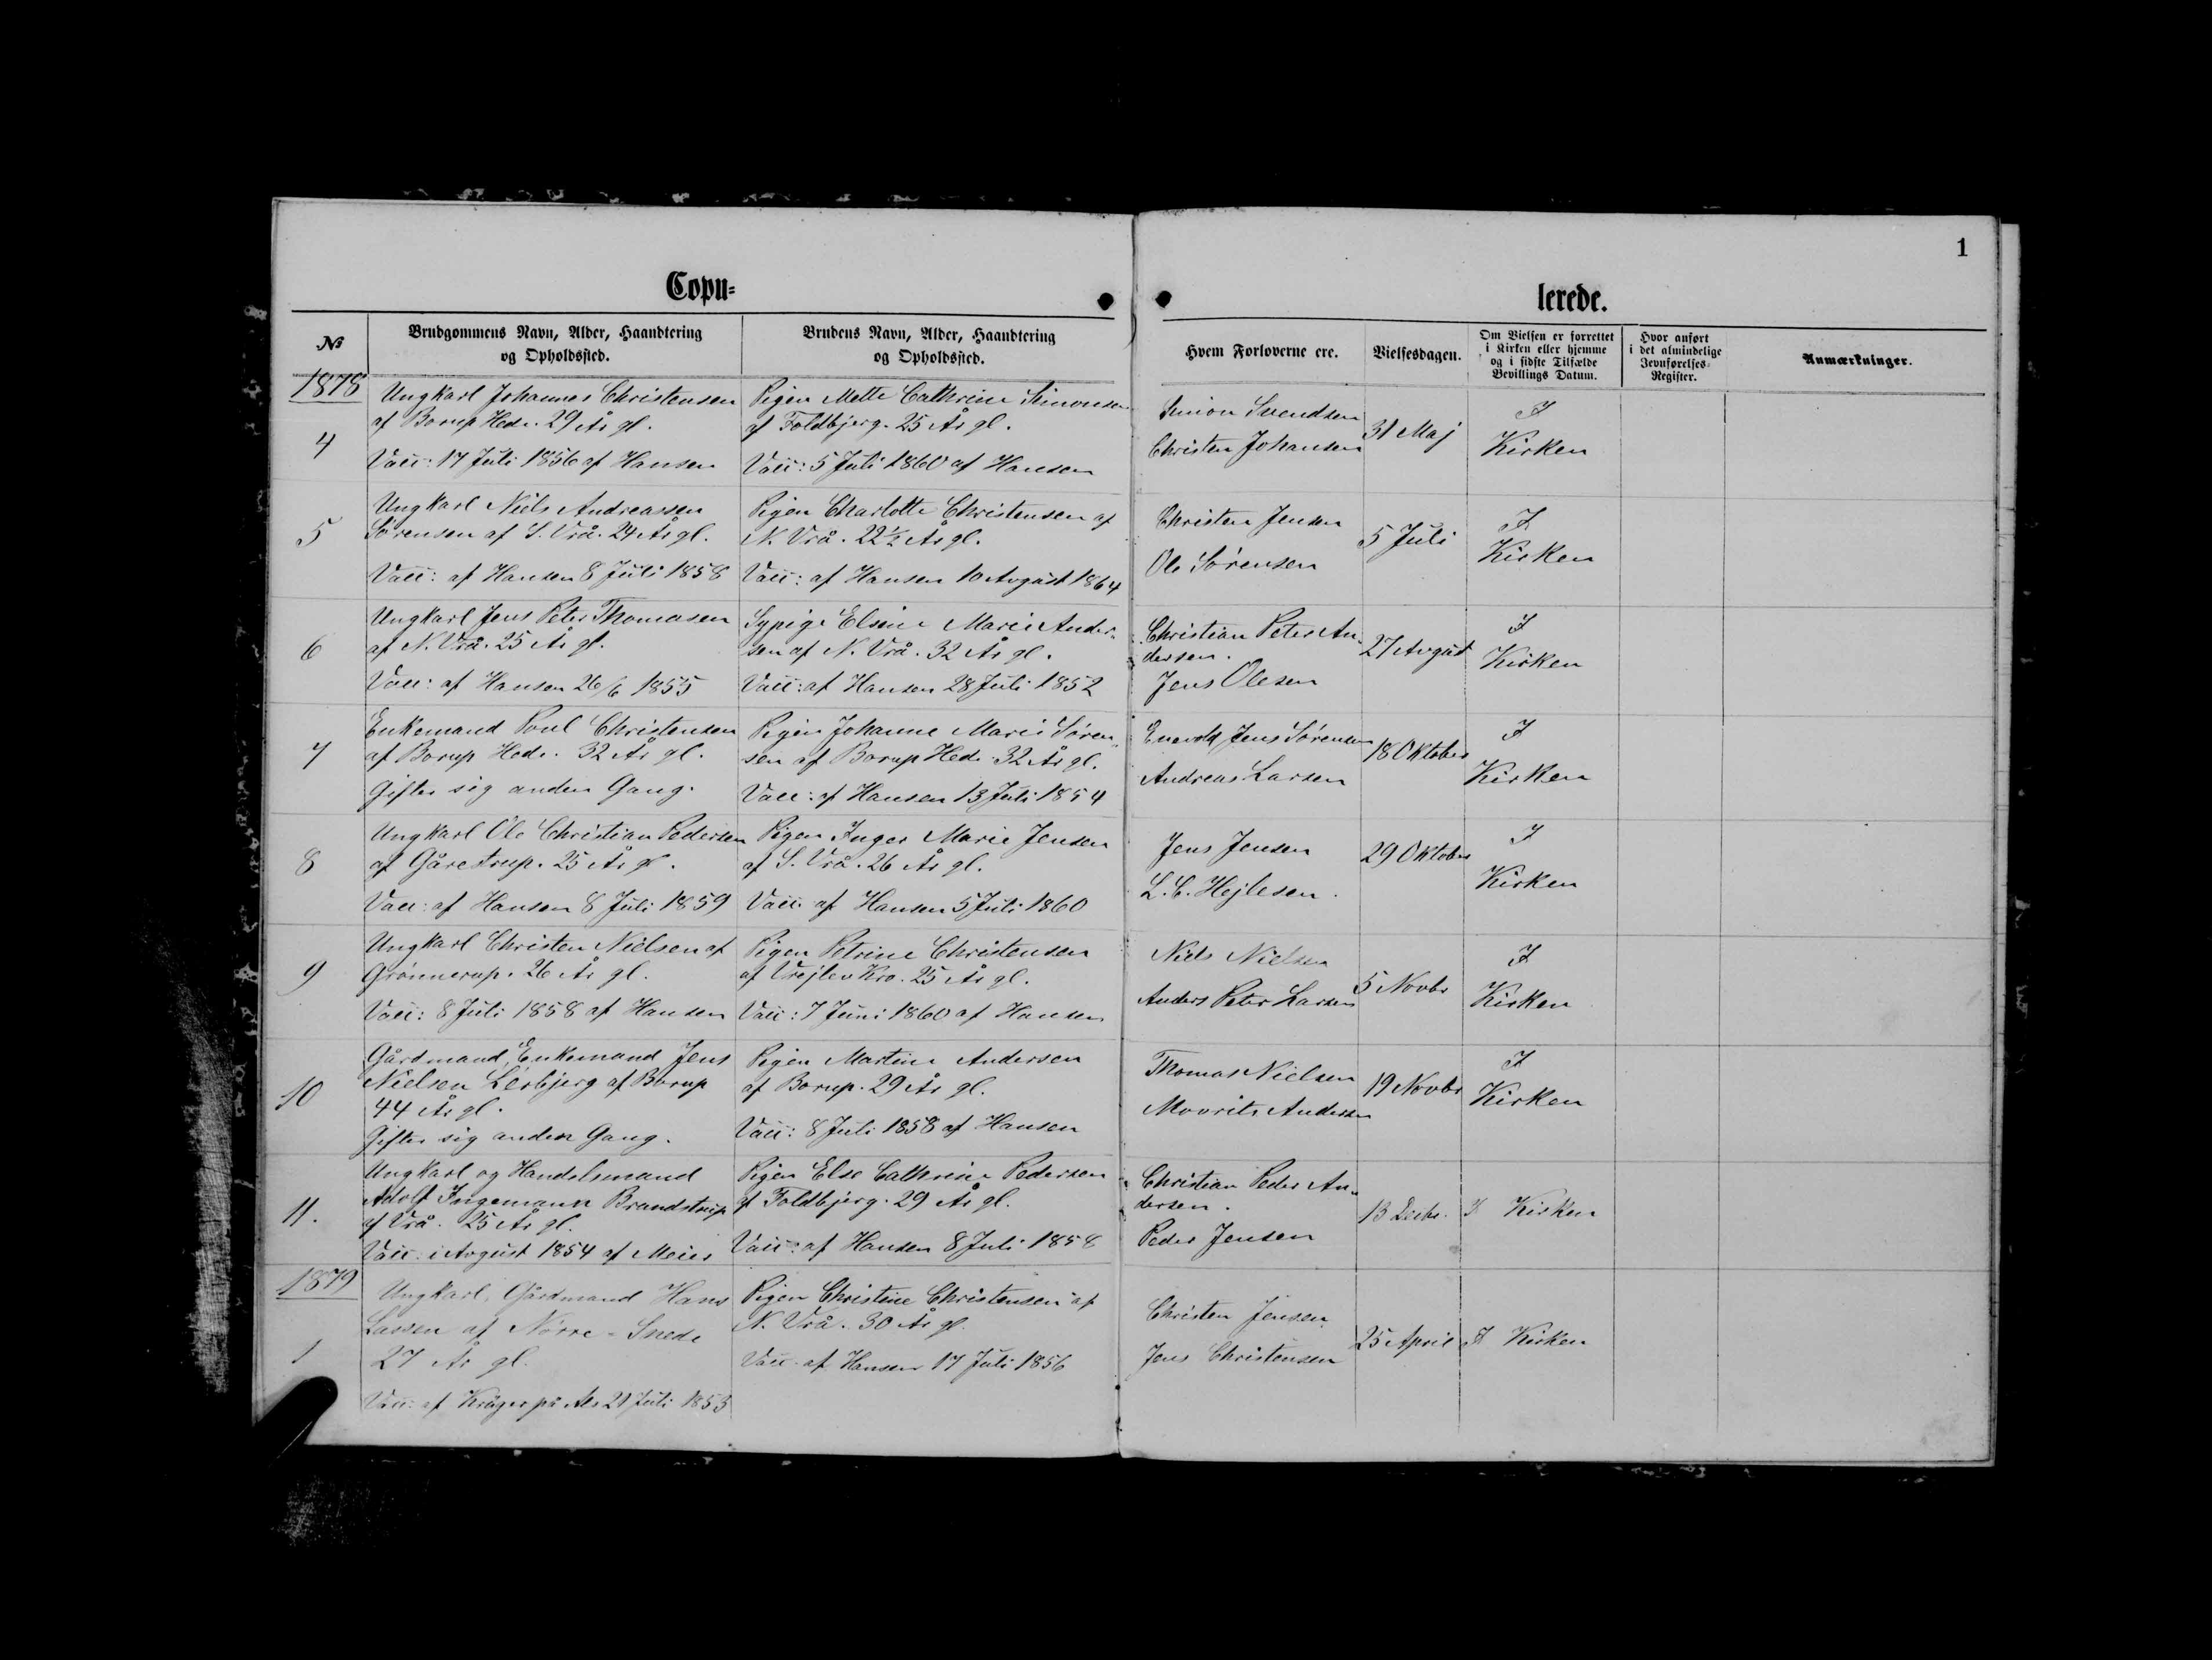 1
Copu=
lerede.
№
Brudgommens Navn, Alder, Haandtering
og Opholdssted.
Brudens Navn, Alder, Haandtering
og Opholdssted.
Hvem Forloverne ere.
Vielsesdagen.
Om Vielsen er forrettet
i Kirken eller hjemme
og i sidste Tilfælde
Bevillings Datum.
Hvor anført
i det almindelige
Jevnførelses-
Register.
Anmærkninger.
1878
4
Ungkarl Johannes Christensen
af Borup Hede. 29 År gl.
Vacc: 17 Juli 1856 af Hansen
Pigen Mette Cathrine Simonsen
af Foldbjerg. 25 År gl.
Vacc: 5 Juli 1860 af Hansen
Simon Svendsen
Christen Johansen
31 Maj
I
Kirken
5
Ungkarl Niels Andreassen
Sørensen af S. Vrå. 24 År gl.
Vacc: af Hansen 8 Juli 1858
Pigen Charlotte Christensen af
N. Vrå. 22½ År gl.
Vacc: af Hansen 10 Avgust 1864
Christen Jensen
Ole Sørensen
5 Juli
I
Kirken
6
Ungkarl Jens Peter Thomasen
af N. Vrå. 25 År gl.
Vacc: af Hansen 26/6 1855
Sypige Elsine Marie Ander-
sen af N. Vrå. 32 År gl.
Vacc: af Hansen 28 Juli 1852
Christian Peter An-
dersen.
Jens Olesen
27 Avgust
I
Kirken
7
Enkemand Poul Christensen
af Borup Hede. 32 År gl.
Gifter sig anden Gang.
Pigen Johanne Marie Søren-
sen af Borup Hede 32 År gl.
Vacc: af Hansen 13 Juli 1854
Enevold Jens Sørensen
Andreas Larsen
18 Oktober
I
Kirken
8
Ungkarl Ole Christian Pedersen
af Gårestrup. 25 År gl.
Vacc: af Hansen 8 Juli 1859
Pigen Inger Marie Jensen
af S. Vrå. 26 År gl.
Vacc. af Hansen 5 Juli 1860
Jens Jensen
L. C. Hejlesen.
29 Oktober
I
Kirken
9
Ungkarl Christen Nielsen af
Grønnerup. 26 År gl.
Vacc: 8 Juli 1858 af Hansen
Pigen Petrine Christensen
af Vrejlev Kro. 25 År gl.
Vacc: 7 Juni 1860 af Hansen
Niels Nielsen
Anders Peter Larsen
5 Novbr
I
Kirken
10
Gårdmand, Enkemand Jens
Nielsen Lerbjerg af Borup
44 År gl.
Gifter sig anden Gang.
Pigen Martine Andersen
af Borup. 29 År gl.
Vacc: 8 Juli 1858 af Hansen
Thomas Nielsen
Movrits Andersen
19 Novbr
I
Kirken
11.
Ungkarl og Handelsmand
Adolf Ingemann Brandstrup
af Vrå. 25 År gl.
Vacc. i Avgust 1854 af Meier
Pigen Else Cathrine Pedersen
af Foldbjerg. 29 År gl.
Vacc: af Hansen 8 Juli 1858
Christian Peder An-
dersen.
Peder Jensen
13 Decbr.
I Kirken
1879
1
Ungkarl, Gårdmand Hans
Lassen af Nørre-Snede
27 År gl.
Vacc: af Krüger på Als 21 Juli 1853
Pigen Christine Christensen af
N. Vrå. 30 År gl.
Vacc. af Hansen 17 Juli 1856
Christen Jensen
Jens Christensen
25 April
I Kirken